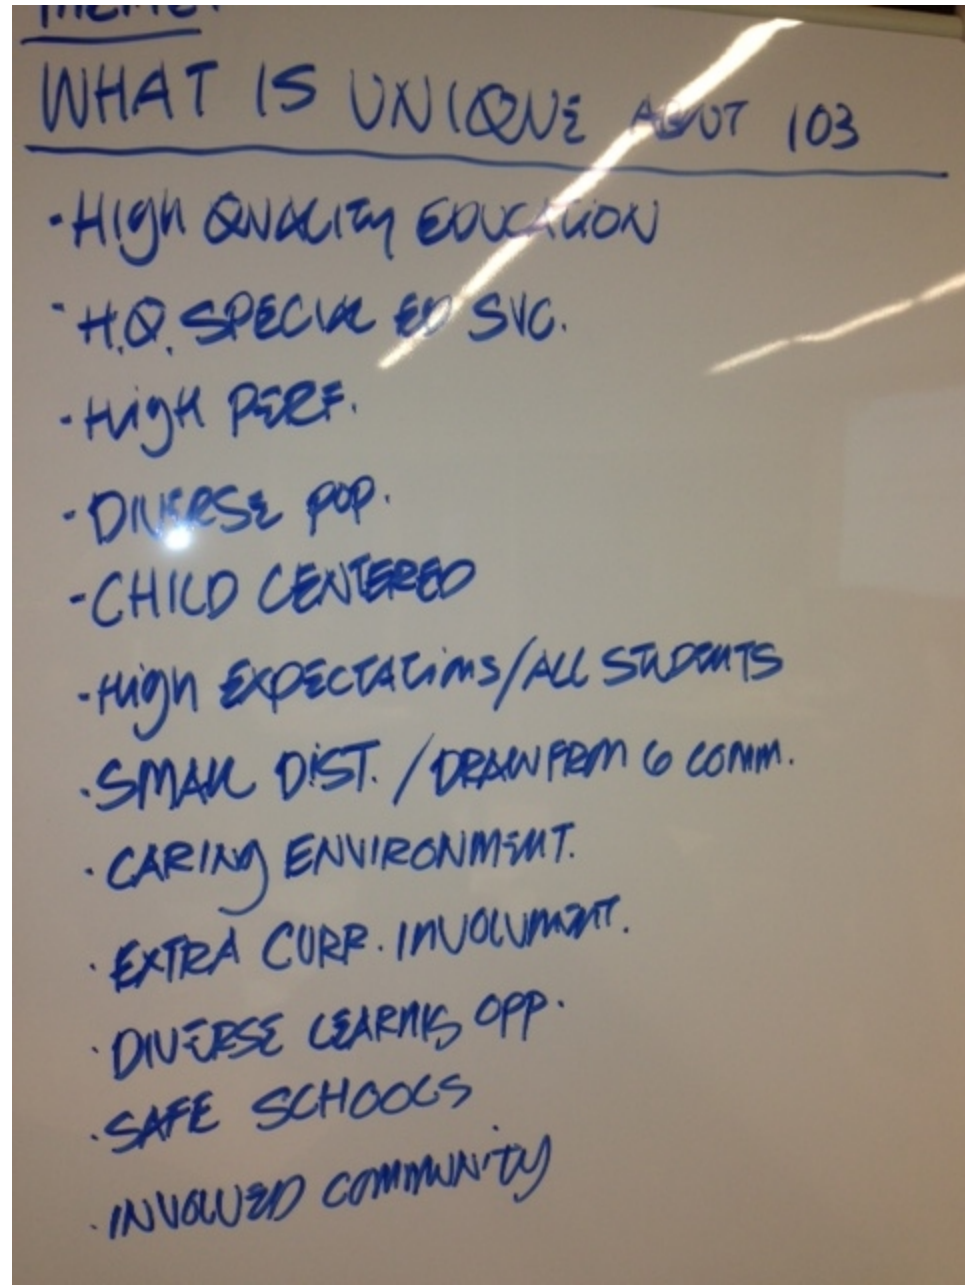 THEME:
WHAT IS UNIQUE ABOUT 103
- HIGH QUALITY EDUCATION
- H.Q. SPECIAL ED SVC.
- HIGH PERF.
- DIVERSE POP.
- CHILD CENTERED
- HIGH EXPECTATIONS/ALL STUDENTS
· SMALL DIST. / DRAW FROM 6 COMM.
· CARING ENVIRONMENT.
· EXTRA CURR. INVOLVMENT.
· DIVERSE LEARNING OPP.
· SAFE SCHOOLS
· INVOLVED COMMUNITY